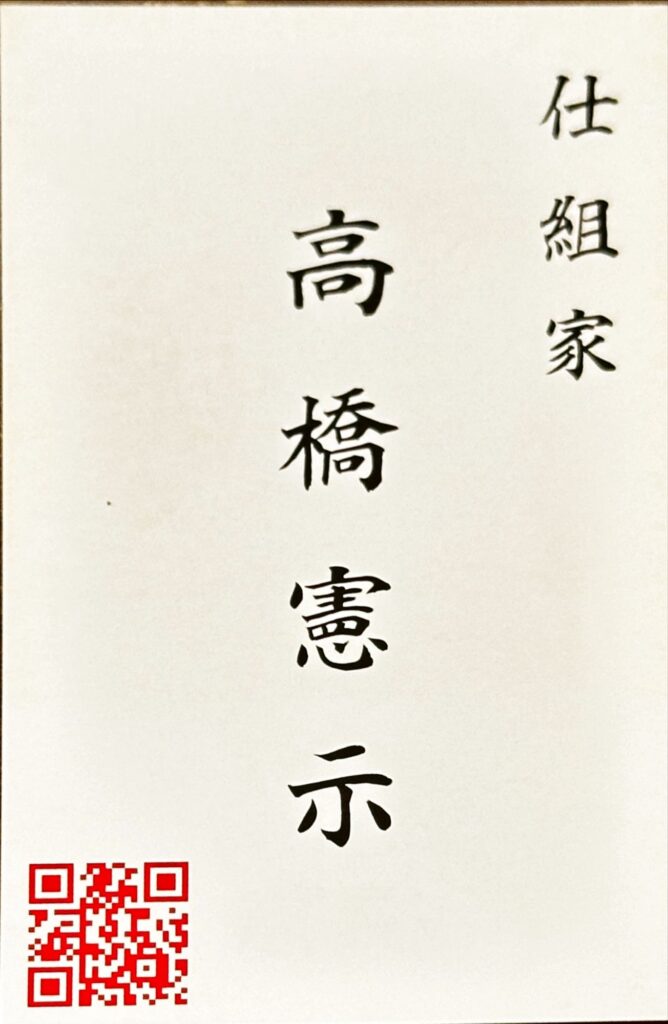 仕組家
高橋憲示